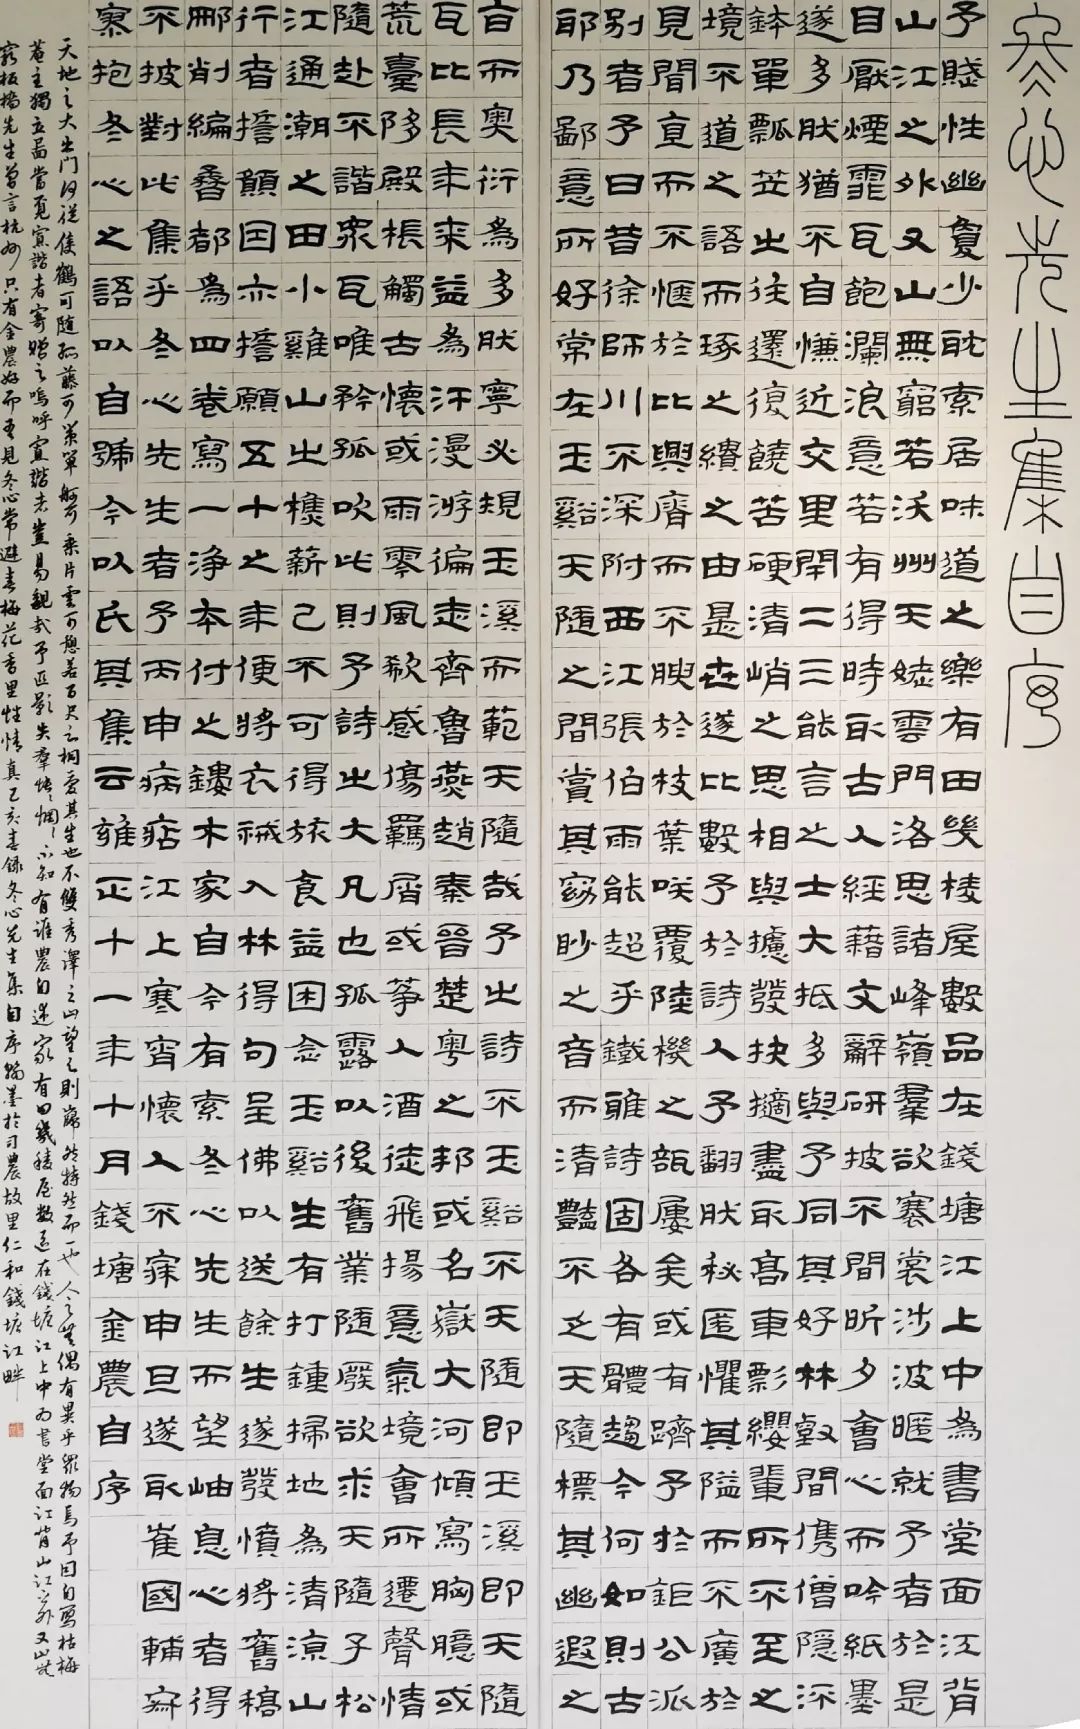 冬心先生集自序
予賤性幽敻少耽索居味道之樂有田幾棱屋數品在錢塘江上中為書堂面江背
山江之外又山無窮若沃州天姥雲門洛思諸峰嶺羣欲褰裳涉波暱就予者於是
目厭煙霏瓦飽瀾浪意若有得時取古人經藉文辭研披不間昕夕會心而吟紙墨
遂多肰猶不自慊近交里閈二三能言之士大抵多與予同其好林㲄間儁僧隱流
鉢單瓢笠之往還復饒苦硬清峭之思相與攄發抉擿盡取高車影纓輩所不至之
境不道之語而琢之繢之由是世遂比數予於詩人予翻肰秘匿懼其隘而不廣於
見聞亶而不愜於比興膚而不腴於枝葉咲覆陸機之瓿屢矣或有躋予於鉅公派
别者予曰昔徐師川不深附西江張伯雨能超乎鐵雖詩固各有體趨今何如則古
耶乃鄙意所好常在玉谿天隨之間賞其窈眇之音而清豔不乏天隨標其幽遐之
旨而奧衍為多肰寧必規玉溪而範天隨哉予之詩不玉谿不天隨即玉溪即天隨
瓦比長年來益為汗漫游徧走齊魯燕趙秦晉楚粵之邦或名嶽大河傾寫胸臆或
荒臺陊殿棖觸古懷或雨零風欷感傷羈屑或箏人酒徒飛揚意氣境會所遷聲情
隨赴不諧衆瓦唯矜孤吹此則予詩之大凡也孤露以後舊業隨廢欲求天隨子松
江通潮之田小雞山之樵薪已不可得旅食益困念玉谿生有打鍾掃地為清涼山
行者擔願因亦擔願五十之年便將衣祴入林得句呈佛以送餘生遂發憤將舊稿
郦削編叠都為四卷寫一淨本付之鏤木家自今有索冬心先生而望岫息心者得
不披對此集乎冬心先生者予丙申病痁江上寒宵懷人不寐申旦遂取崔國輔寂
寥抱冬心之語以自號今以氏其集云雍正十一年十月錢塘金農自序
天地之大出門何從隻鶴可隨孤藤可策單舸可乘片雲可憩若百尺之桐愛其生也不雙秀澤之山望之則巋然特然而一也人之無偶有異乎眾物焉予因自寫枯梅
菴主獨立圖當覓寡諧者寄贈之嗚呼寡諧者豈易觀哉予匹影失羣悵悵惘惘不知有誰農自述家有田幾棱屋數區在錢塘江上中為書堂面江背山江之外又山無
窮板橋先生曾言杭州只有金農好而吾見冬心常避去梅花香里性情真己亥春錄冬心先生集自序翰墨於司農故里仁和錢塘江畔